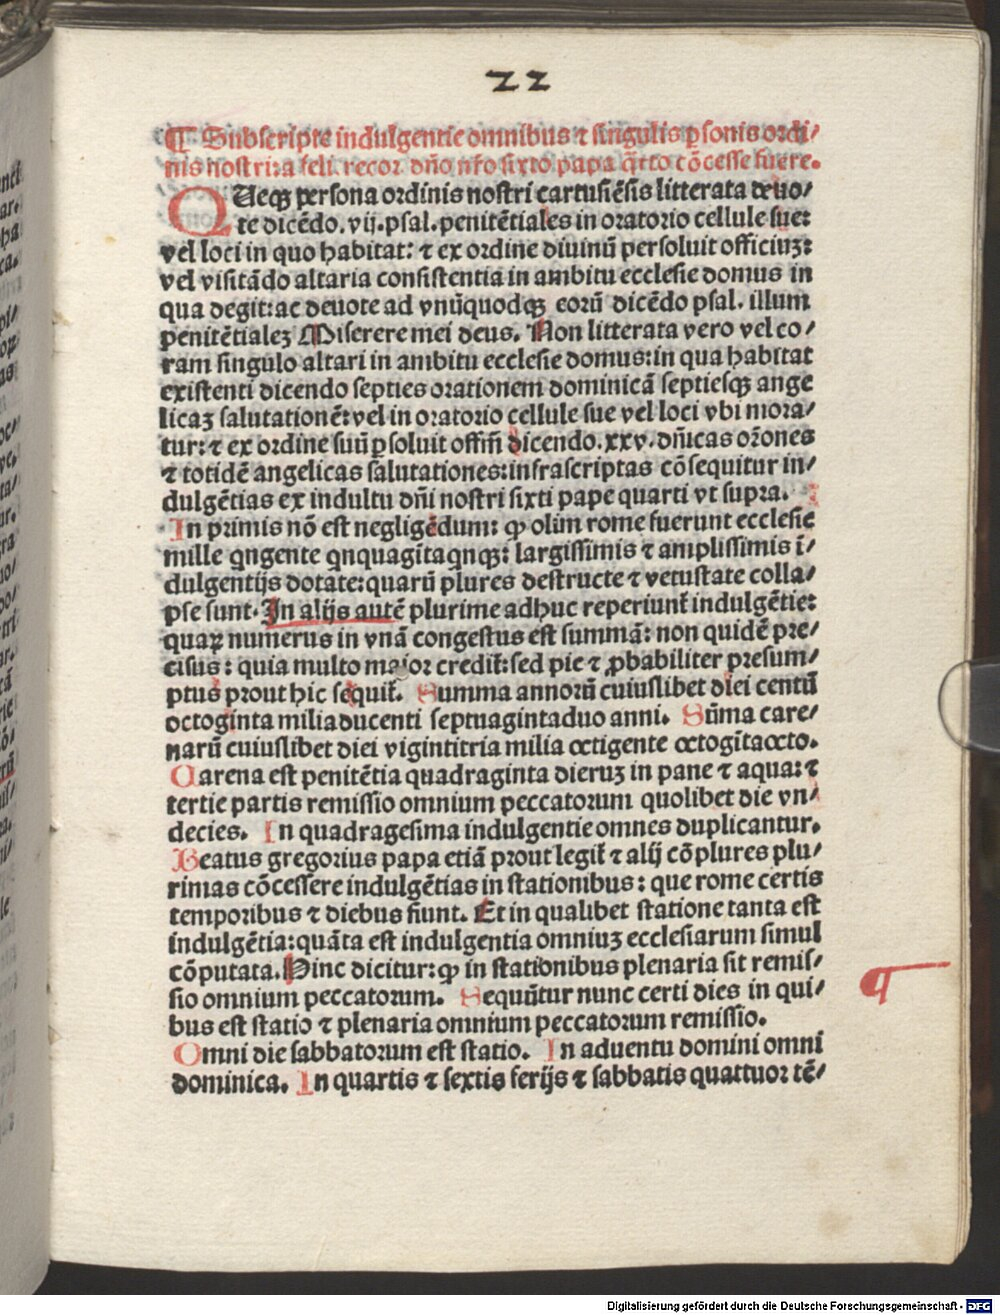 22
¶ Subscripte indulgentie omnibus ⁊ singulis ꝑsonis ordi/
nis nostri: a feli. recor. dño nr̃o sixto papa q̃rto cõcesse fuere.
QUeqꝫ persona ordinis nostri cartusiẽsis litterata deuo/
te dicẽdo. vij. psal. penitẽtiales in oratorio cellule sue:
vel loci in quo habitat: ⁊ ex ordine diuinũ persoluit officiuꝫ:
vel visitãdo altaria consistentia in ambitu ecclesie domus in
qua degit: ac deuote ad vnũquodqꝫ eorũ dicẽdo psal. illum
penitẽtialeꝫ Miserere mei deus. Non litterata vero vel co/
ram singulo altari in ambitu ecclesie domus: in qua habitat
existenti dicendo septies orationem dominicã septiesqꝫ ange
licaꝫ salutationẽ: vel in oratorio cellule sue vel loci vbi mora/
tur: ⁊ ex ordine suũ ꝑsoluit offm̃ dicendo. xxv. dñicas orõnes
⁊ totidẽ angelicas salutationes: infrascriptas cõsequitur in/
dulgẽtias ex indultu dñi nostri sixti pape quarti vt supra.
In primis nõ est negligẽdum: ꝙ olim rome fuerunt ecclesie
mille qngente qnquagĩtaqnqꝫ: largissimis ⁊ amplissimis ĩ/
dulgentijs dotate: quarũ plures destructe ⁊ vetustate colla/
pse sunt. In alijs autẽ plurime adhuc reperiunt̃ indulgẽtie:
quaꝝ numerus in vnã congestus est summã: non quidẽ pre/
cisus: quia multo maior credit̃: sed pie ⁊ ꝓbabiliter presum/
ptus prout hic sequit̃. Summa annorũ cuiuslibet diei centũ
octoginta milia ducenti septuagintaduo anni. Sũma care/
narũ cuiuslibet diei vigintitria milia octigente octogĩtaocto.
Carena est penitẽtia quadraginta dieruꝫ in pane ⁊ aqua: ⁊
tertie partis remissio omnium peccatorum quolibet die vn/
decies. In quadragesima indulgentie omnes duplicantur.
Beatus gregorius papa etiã prout legit̃ ⁊ alij cõplures plu/
rimas cõcessere indulgẽtias in stationibus: que rome certis
temporibus ⁊ diebus fiunt. Et in qualibet statione tanta est
indulgẽtia: quãta est indulgentia omniuꝫ ecclesiarum simul
cõputata. Hinc dicitur: ꝙ in stationibus plenaria sit remis/
sio omnium peccatorum. Sequũtur nunc certi dies in qui/
bus est statio ⁊ plenaria omnium peccatorum remissio.
Omni die sabbatorum est statio. In aduentu domini omni
dominica. In quartis ⁊ sextis ferijs ⁊ sabbatis quattuor tẽ/
¶
Digitalisierung gefördert durch die Deutsche Forschungsgemeinschaft - DFG